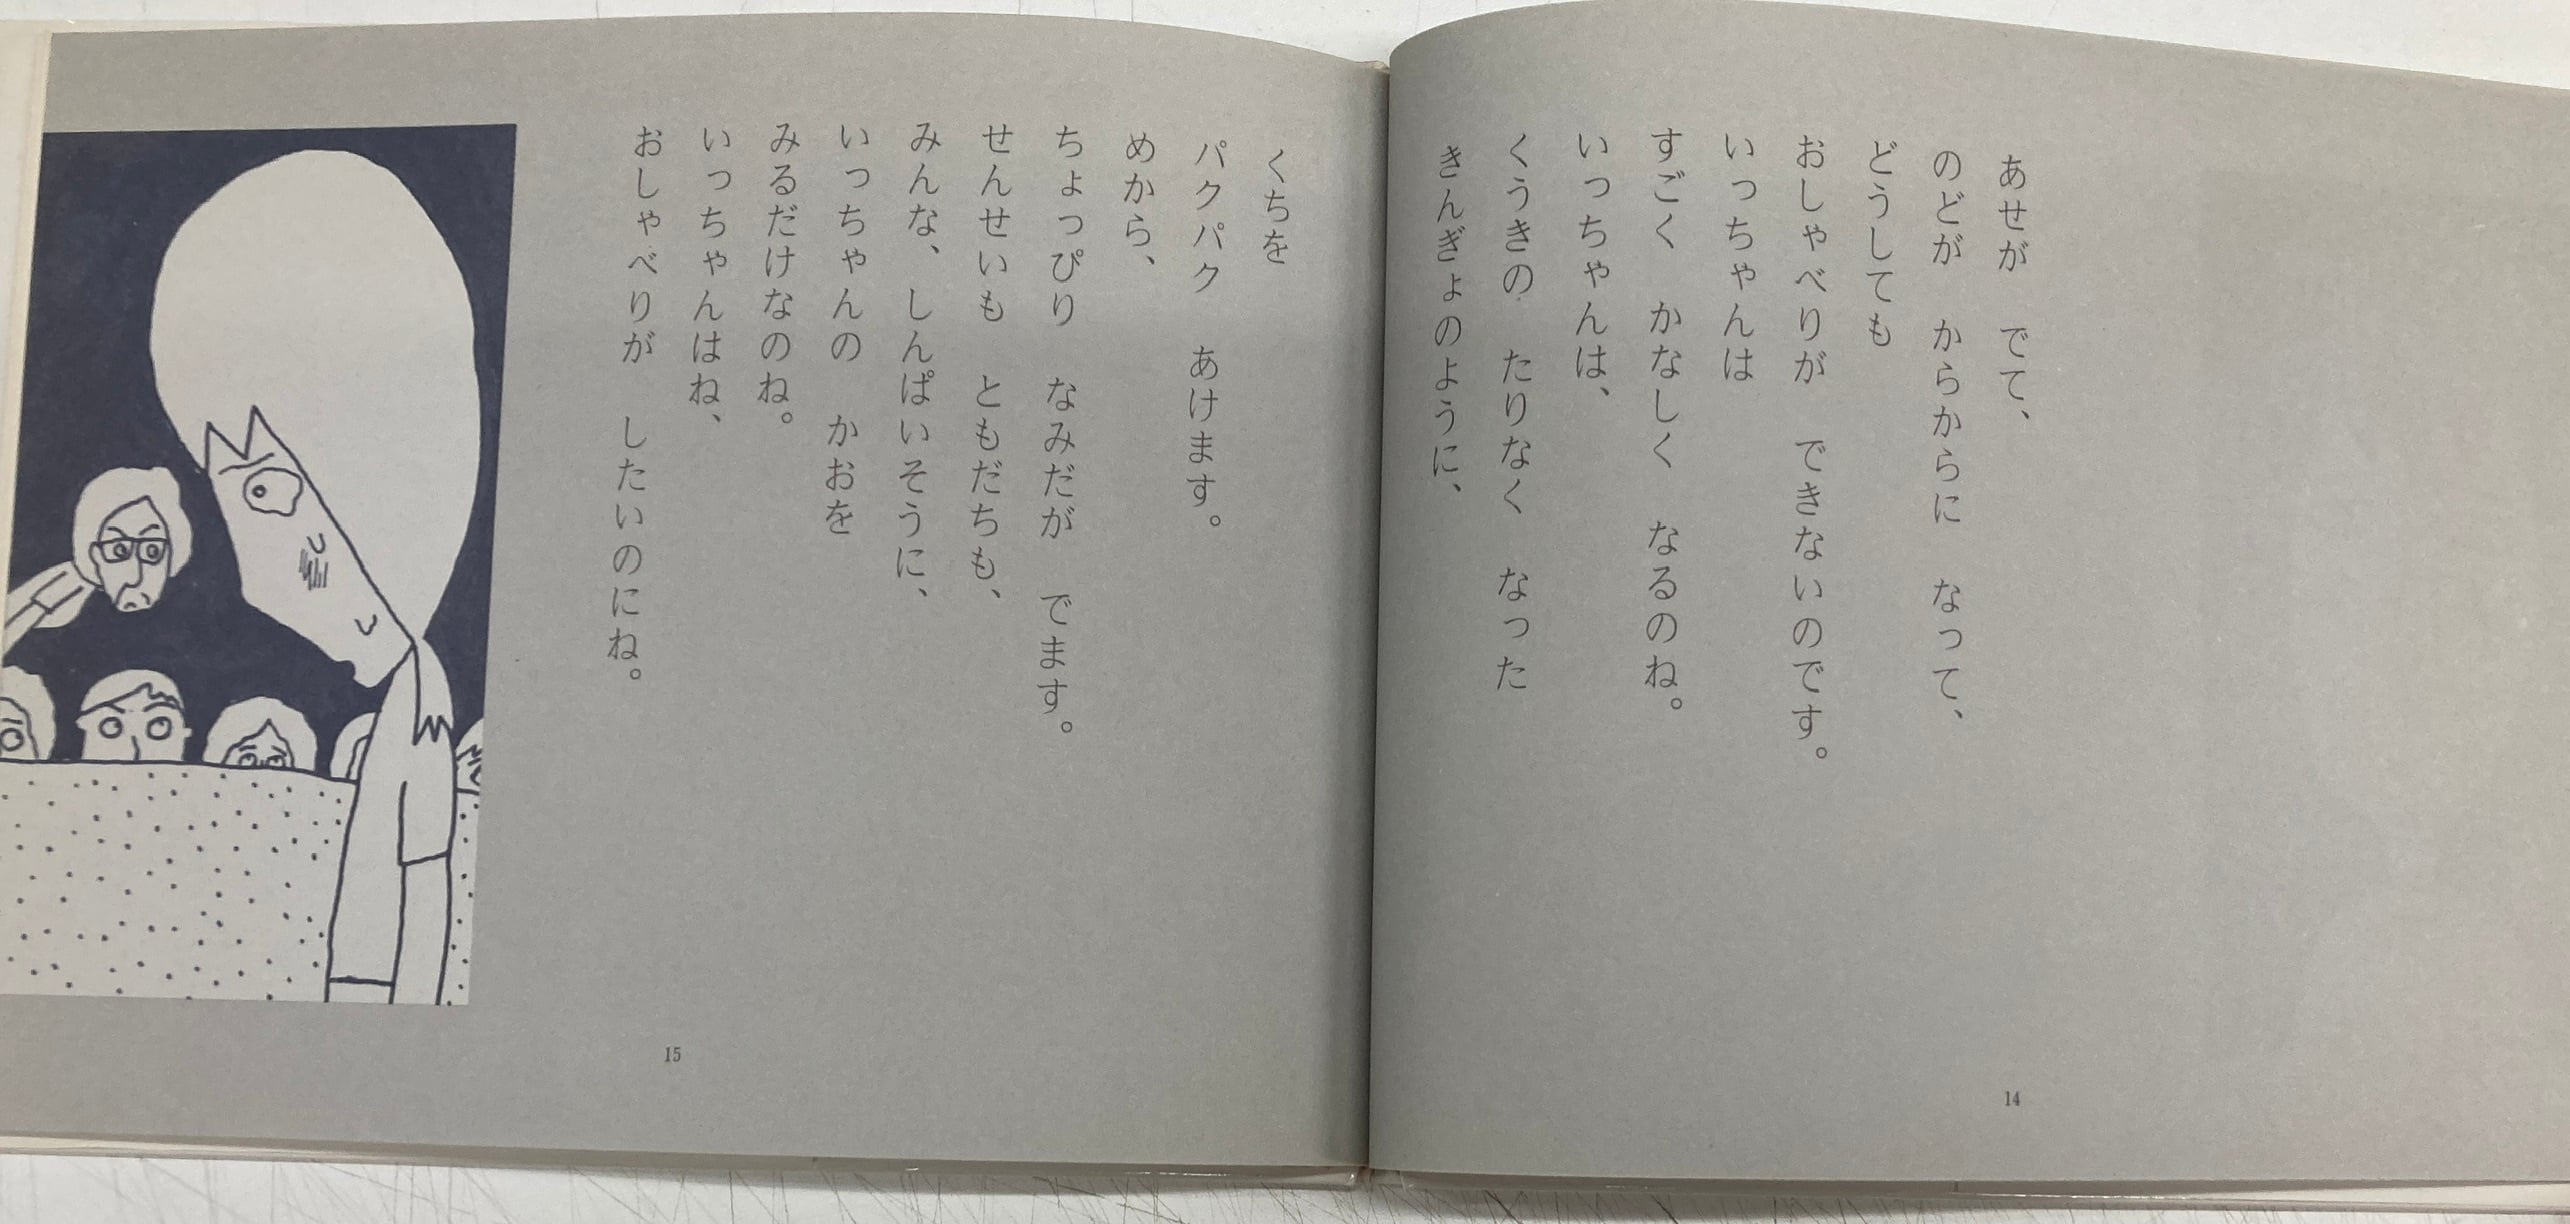 あせが　でて、
のどが　からからに　なって、
どうしても
おしゃべりが　できないのです。
いっちゃんは
すごく　かなしく　なるのね。
いっちゃんは、
くうきの　たりなく　なった
きんぎょのように、
14
くちを
パクパク　あけます。
めから、
ちょっぴり　なみだが　でます。
せんせいも　ともだちも、
みんな、しんぱいそうに、
いっちゃんの　かおを
みるだけなのね。
いっちゃんはね、
おしゃべりが　したいのにね。
15